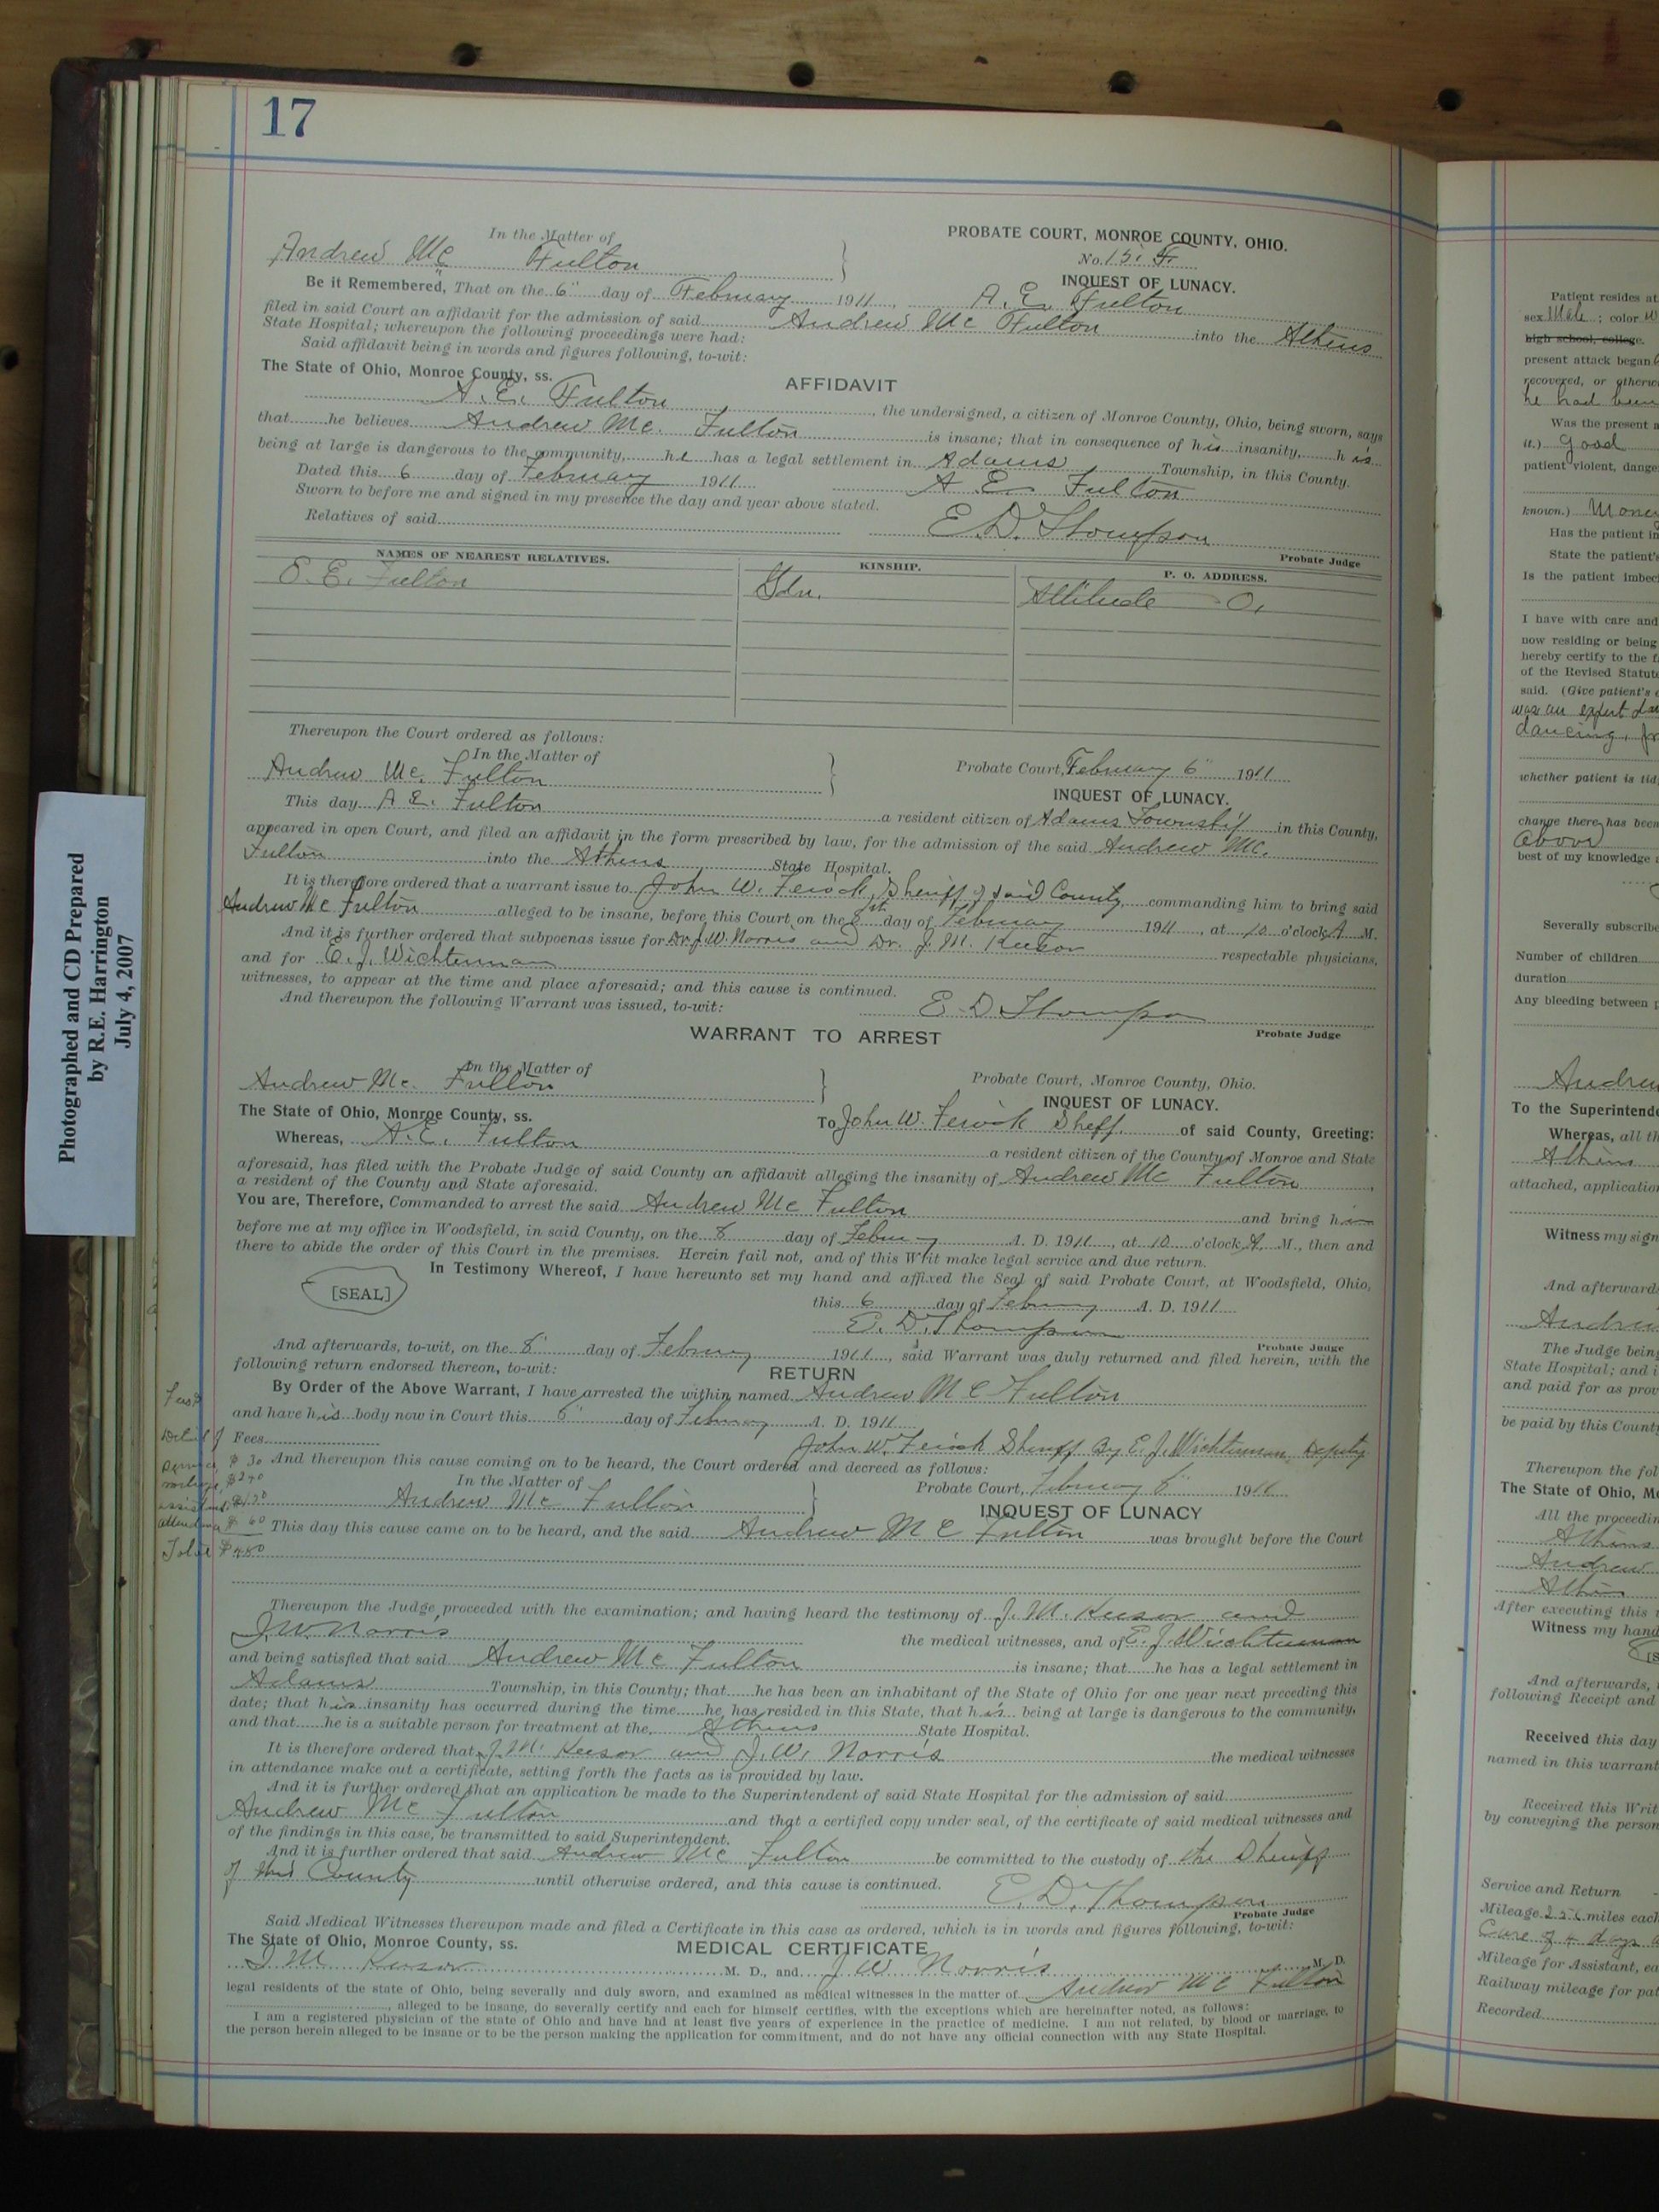 17
In the Matter of
Andrew Mc Fulton
PROBATE COURT, MONROE COUNTY, OHIO.
No.
INQUEST OF LUNACY.
Be it Remembered, That on the 6" day of February 1911, A. E. Fulton
filed in said Court an affidavit for the admission of said Andrew Mc Fulton into the Athens
State Hospital; whereupon the following proceedings were had:
Said affidavit being in words and figures following, to-wit:
The State of Ohio, Monroe County, ss.
AFFIDAVIT
A. E. Fulton, the undersigned, a citizen of Monroe County, Ohio, being sworn, says
that he believes Andrew Mc. Fulton is insane; that in consequence of his insanity, his
being at large is dangerous to the community, he has a legal settlement in Adams Township, in this County.
Dated this 6 day of February 1911 A E Fulton
Sworn to before me and signed in my presence the day and year above stated.
Relatives of said E. D. Thompson
Probate Judge
NAMES OF NEAREST RELATIVES. KINSHIP. P. O. ADDRESS.
E. Fulton Gdn. Altitude O.
Thereupon the Court ordered as follows:
In the Matter of
Andrew Mc. Fulton
Probate Court, February 6" 1911
INQUEST OF LUNACY.
This day A E. Fulton a resident citizen of Adams Township in this County,
appeared in open Court, and filed an affidavit in the form prescribed by law, for the admission of the said Andrew Mc.
Fulton into the Athens State Hospital.
It is therefore ordered that a warrant issue to John W. Sheriff of said County, commanding him to bring said
Andrew Mc Fulton alleged to be insane, before this Court on the 8 day of February 1911, at 10 o'clock A M.
And it is further ordered that subpoenas issue for Dr. J. W. Norris and Dr. J. M. respectable physicians,
and for E. J. Wichterman
witnesses, to appear at the time and place aforesaid; and this cause is continued.
And thereupon the following Warrant was issued, to-wit: E D Thompson
Probate Judge
WARRANT TO ARREST
In the Matter of
Andrew Mc. Fulton
Probate Court, Monroe County, Ohio.
INQUEST OF LUNACY.
The State of Ohio, Monroe County, ss. To John W. Sheff. of said County, Greeting:
Whereas, A. E. Fulton a resident citizen of the County of Monroe and State
aforesaid, has filed with the Probate Judge of said County an affidavit alleging the insanity of Andrew Mc Fulton,
a resident of the County and State aforesaid.
You are, Therefore, Commanded to arrest the said Andrew Mc Fulton and bring him
before me at my office in Woodsfield, in said County, on the 8 day of A. D. 1911, at 10 o'clock A. M., then and
there to abide the order of this Court in the premises. Herein fail not, and of this Writ make legal service and due return.
In Testimony Whereof, I have hereunto set my hand and affixed the Seal of said Probate Court, at Woodsfield, Ohio,
[SEAL]
this 6 day of A. D. 1911
E. D. Thompson
Probate Judge
And afterwards, to-wit, on the 8" day of February 1911, said Warrant was duly returned and filed herein, with the
following return endorsed thereon, to-wit:
RETURN
By Order of the Above Warrant, I have arrested the within named Andrew Mc Fulton
and have his body now in Court this day of A. D. 1911
Fees John W. Sheriff By E. J. Wichterman Deputy
And thereupon this cause coming on to be heard, the Court ordered and decreed as follows:
In the Matter of
Andrew Mc Fulton
Probate Court, February 8" 1911
INQUEST OF LUNACY
This day this cause came on to be heard, and the said Andrew Mc Fulton was brought before the Court
Total $4.80
Thereupon the Judge proceeded with the examination; and having heard the testimony of J. M. and
J. W. Norris the medical witnesses, and of E. J. Wichterman
and being satisfied that said Andrew Mc Fulton is insane; that he has a legal settlement in
Adams Township, in this County; that he has been an inhabitant of the State of Ohio for one year next preceding this
date; that his insanity has occurred during the time he has resided in this State, that his being at large is dangerous to the community,
and that he is a suitable person for treatment at the Athens State Hospital.
It is therefore ordered that J. M. and J. W. Norris the medical witnesses
in attendance make out a certificate, setting forth the facts as is provided by law.
And it is further ordered that an application be made to the Superintendent of said State Hospital for the admission of said
Andrew Mc Fulton and that a certified copy under seal, of the certificate of said medical witnesses and
of the findings in this case, be transmitted to said Superintendent.
And it is further ordered that said Andrew Mc Fulton be committed to the custody of the Sheriff
of this County until otherwise ordered, and this cause is continued.
E. D. Thompson
Probate Judge
Said Medical Witnesses thereupon made and filed a Certificate in this case as ordered, which is in words and figures following, to-wit:
The State of Ohio, Monroe County, ss.
MEDICAL CERTIFICATE
J. M. M. D., and J W Norris M. D.
legal residents of the state of Ohio, being severally and duly sworn, and examined as medical witnesses in the matter of Andrew Mc Fulton
, alleged to be insane, do severally certify and each for himself certifies, with the exceptions which are hereinafter noted, as follows:
I am a registered physician of the state of Ohio and have had at least five years of experience in the practice of medicine. I am not related, by blood or marriage, to
the person herein alleged to be insane or to be the person making the application for commitment, and do not have any official connection with any State Hospital.
Photographed and CD Prepared
by R.E. Harrington
July 4, 2007
Patient resides at
sex Male; color W
high school, college.
present attack began
recovered, or otherwi
he had been
Was the present a
it.) Good
patient violent, dange
known.)
Has the patient in
State the patient's
Is the patient imbec
I have with care and
now residing or being
hereby certify to the f
of the Revised Statut
said. (Give patient's
was an expert
dancing,
whether patient is tid
change there has been
above
best of my knowledge a
Severally subscribe
Number of children
duration
Any bleeding between p
Andrew
To the Superintende
Whereas, all th
Athens
attached, application
Witness my sign
And afterward
Andrew
The Judge being
State Hospital; and i
and paid for as prov
be paid by this County
Thereupon the fol
The State of Ohio, Mo
All the proceedin
Athens
Andrew
Athens
After executing this
Witness my hand
And afterwards,
following Receipt and
Received this day
named in this warrant
Received this Writ
by conveying the person
Service and Return
Mileage miles each
Care of 4 days
Mileage for Assistant, ea
Railway mileage for pat
Recorded